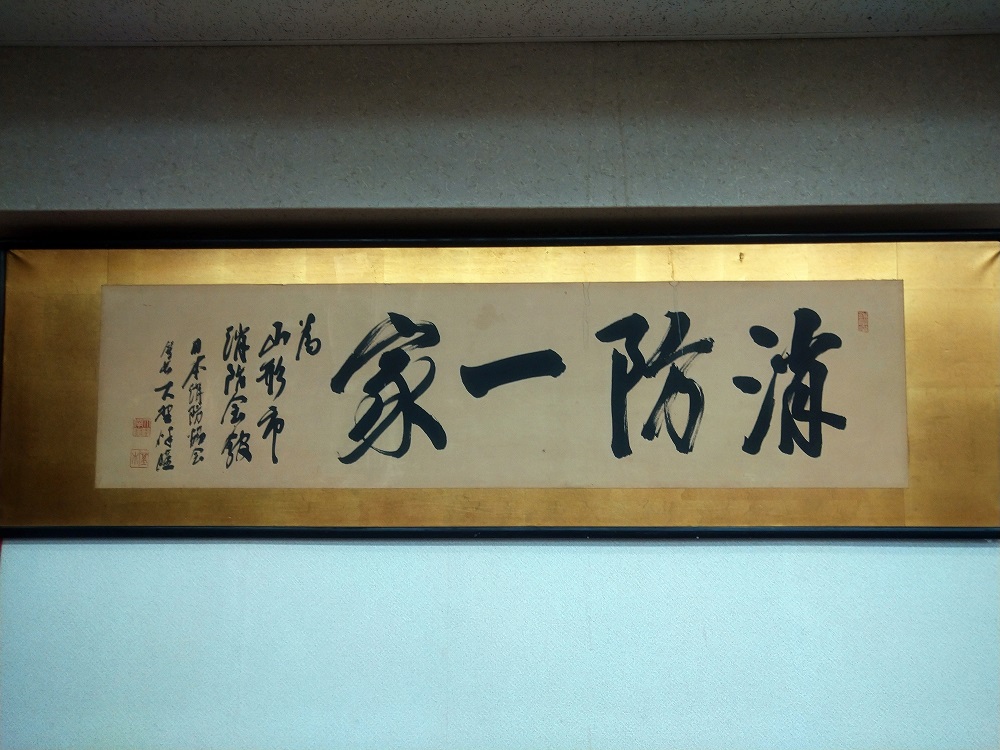 消防一家
為
山形市
消防会館
日本消防協会
会長